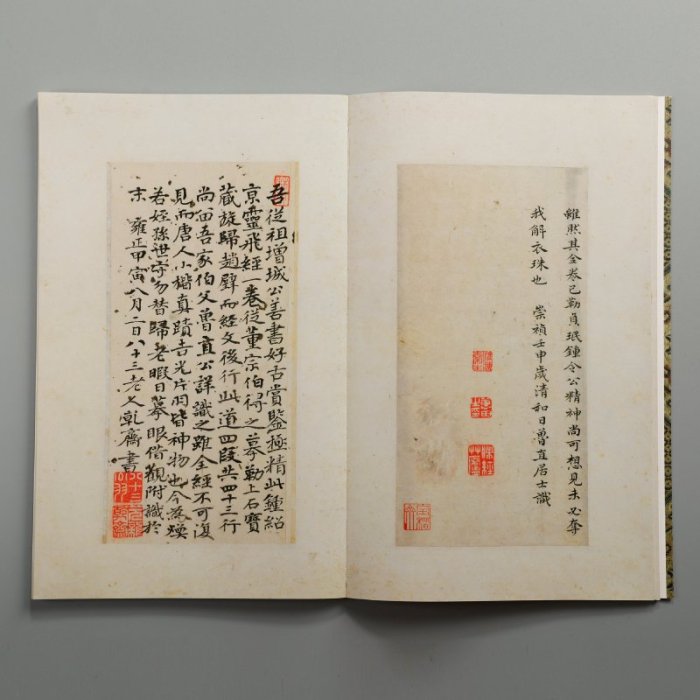 雖然其全卷已勒貞珉鍾令公精神尚可想見未必奪
我解衣珠也 崇禎壬申歲清和日魯直居士識
吾從祖增城公善書好古賞鑒極精此鍾紹
京靈飛經一卷從董宗伯得之摹勒上石寶
藏旋歸趙璧而經文後行此道四段共四十三行
尚留吾家伯父魯直公詳識之雖全經不可復
見而唐人小楷真蹟吉光片羽皆神物也今為煥
若姪孫世守勿替歸老暇日摹眼借觀附識於
末 雍正甲寅八月二日八十三老人乾齋書